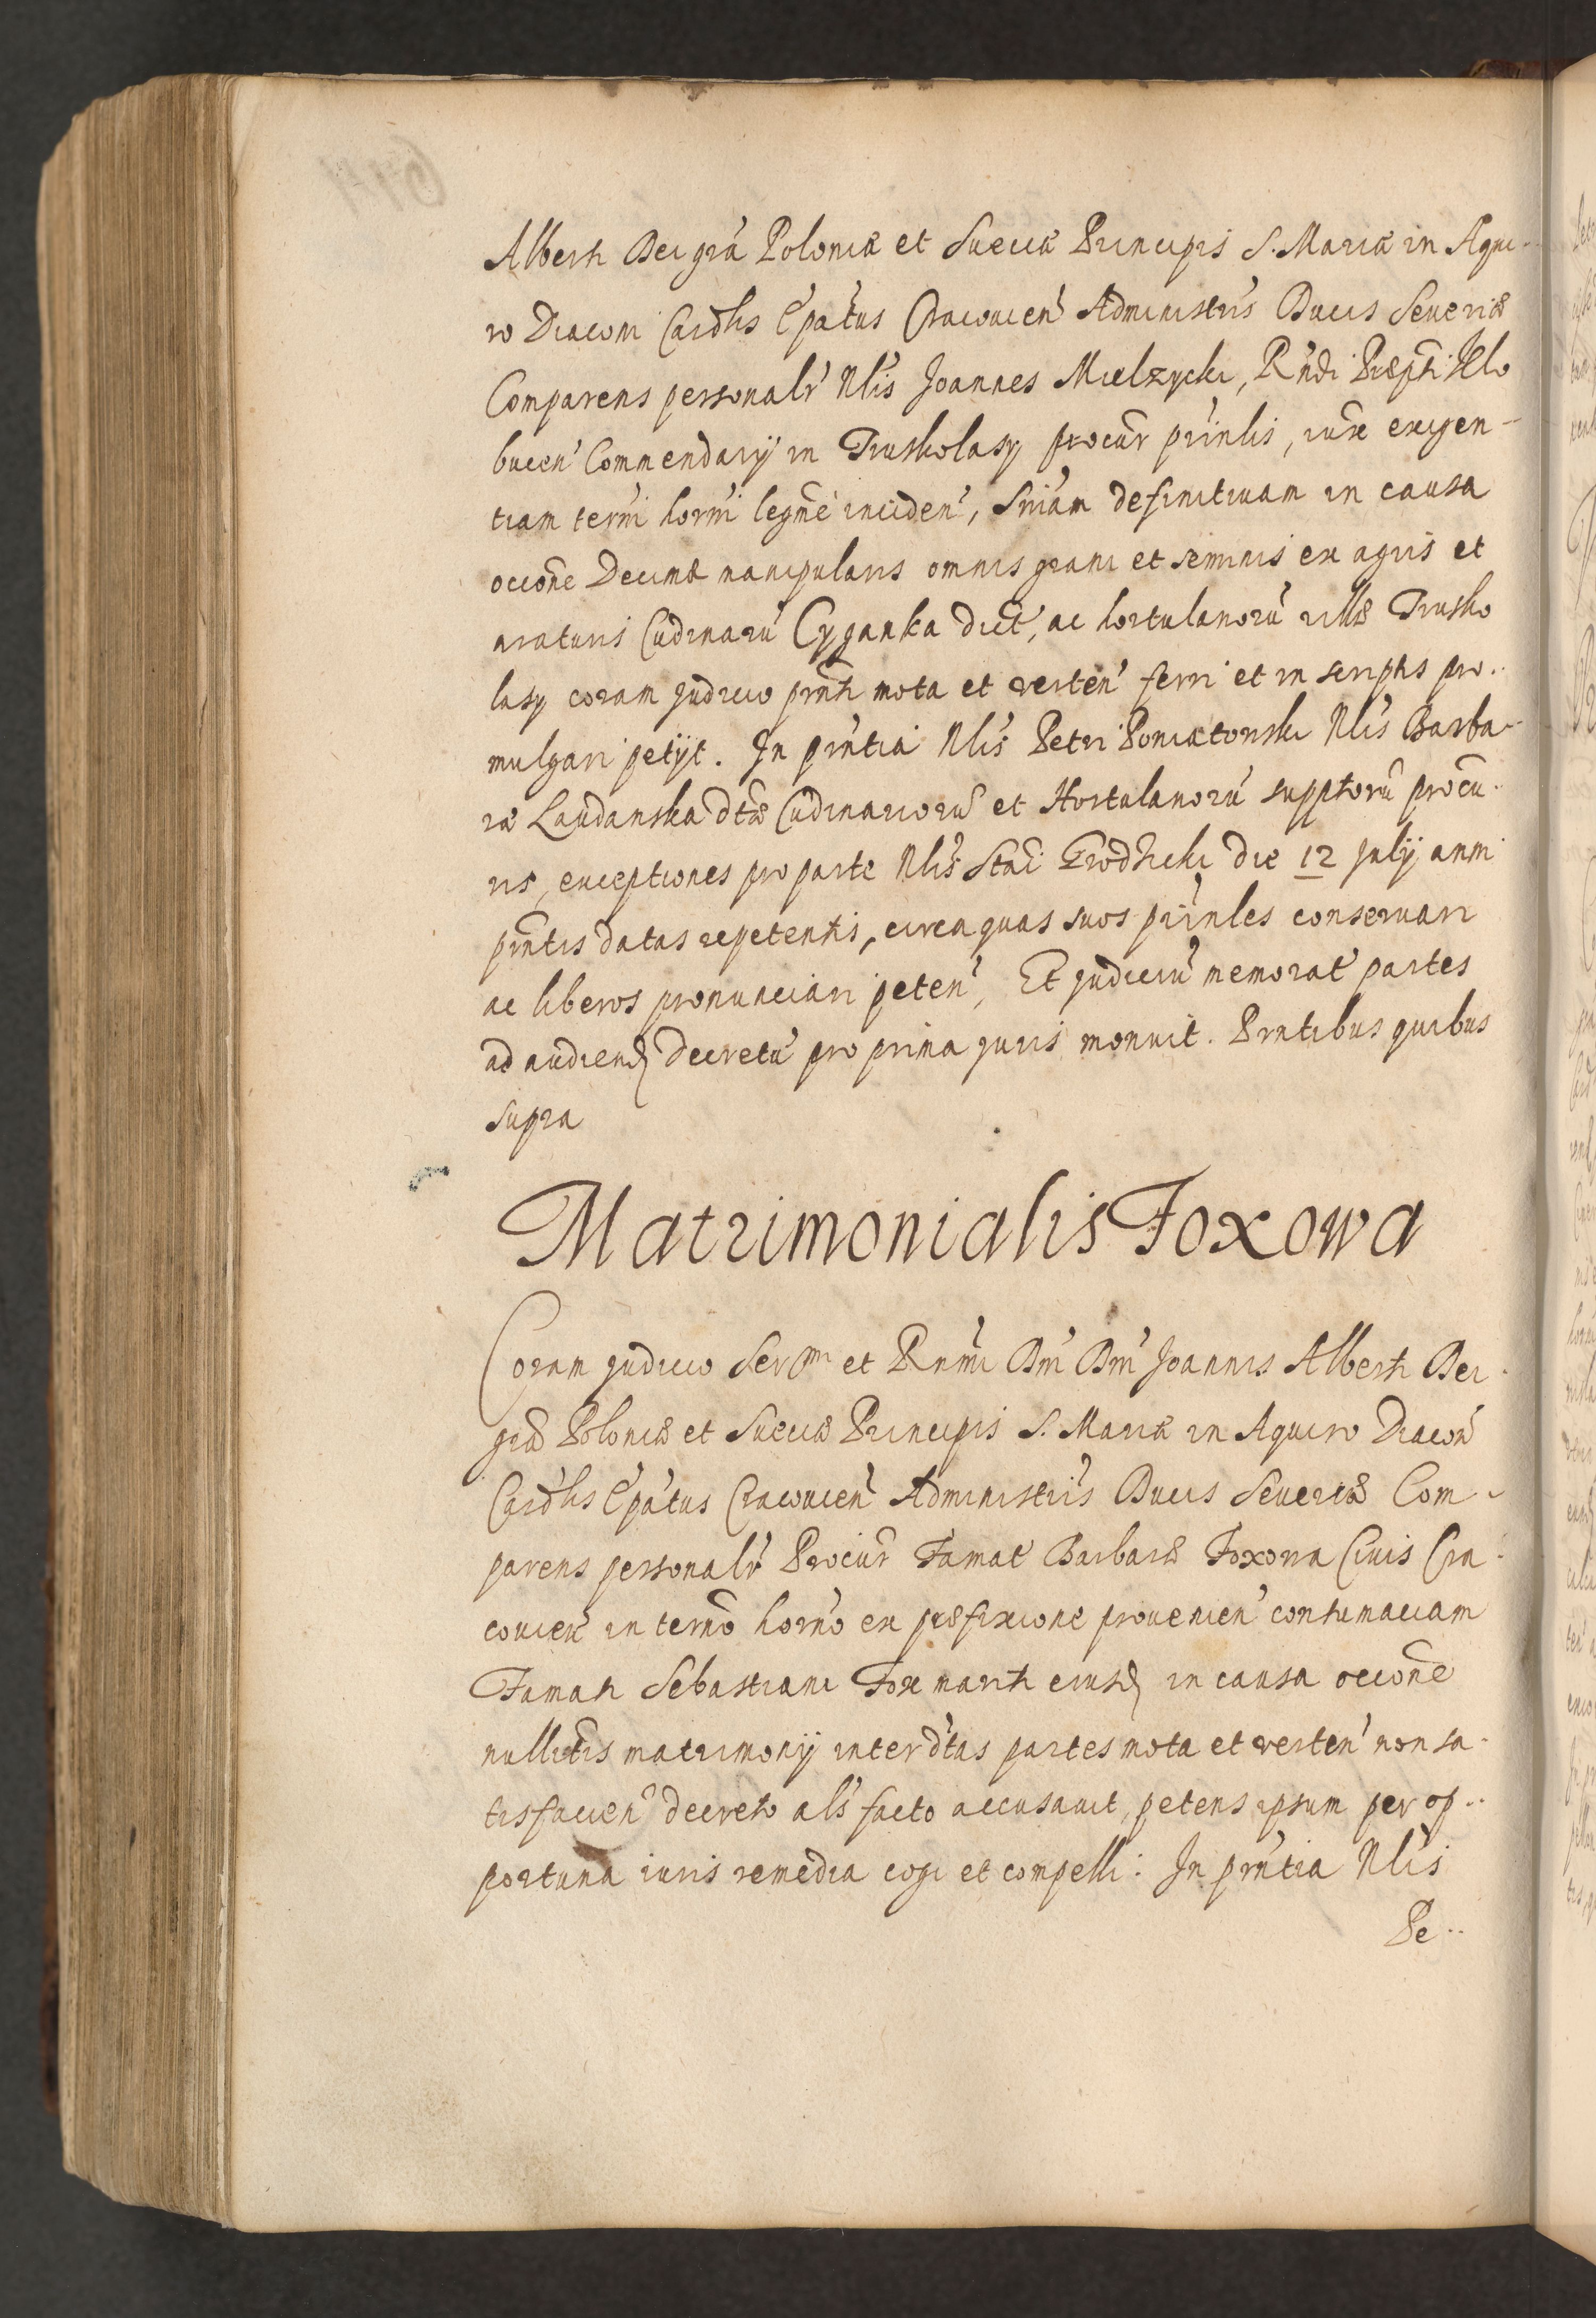 Alberti Dei gr̃a Poloniæ et Sueciæ Principis S. Mariæ in Aqui-
ro Diaconi Cardl̃is Ep̃atus Cracovien̄ Administr̃is Ducis Severiæ
Comparens personalr̃ Nl̃is Joannes Mielzycki, Rn̄di Præp̃ti Klo
bucen̄ Commendarij in Truskolasy procur̄ pr̃inlis, iure exigen-
tiam term̃i horn̄i legm̃e inciden̄, Sn̄iam definitivam in causa
occōne Decimæ manipularis omnis grani et seminis ex agris et
araturis Cudinarū Cyganka dict̄, ac hortulanorū villæ Trusko
lasy coram Judicio pn̄ti mota et verten̄ ferri et in scriptis pro-
mulgari petijt. In pn̄tia Nl̃is Petri Poniatowski Nl̃is Barba-
ræ Laudanska dt̃æ Cudinariorū et Hortulanorū supp̃torū procu-
ris, exceptiones pro parte Nl̃is Stāi Grodzicki die 12 Julij anni
pn̄tis datas repetentis, circa quas suos pr̃inles conservari
ac liberos pronunciari peten̄, Et Judiciū memorat̄ partes
ad audiend̄ decretū pro prima juris monuit. Pn̄tibus quibus
supra
Matrimonialis Foxowa
Coram Judicio Ser^mi et Rn̄mi Dn̄i Dn̄i Joannis Alberti Dei
gr̃a Poloniæ et Sueciæ Principis S. Mariæ in Aquiro Diacon̄
Cardl̃is Ep̃atus Cracovien̄ Administr̃is Ducis Severiæ Com-
parens personalr̃ Procur̄ Famat̄ Barbaræ Foxowa Civis Cra-
covien̄ in term̃o horn̄o ex præfixione provenien̄ contumaciam
Famati Sebastiani Fox mariti eiusd̄ in causa occōne
nullit̃is matrimonij inter dt̃as partes mota et verten̄ non sa-
tisfacien̄ decreto al̃s facto accusavit, petens ipsum per op-
portuna iuris remedia cogi et compelli: In pn̄tia Nl̃is
Pe-